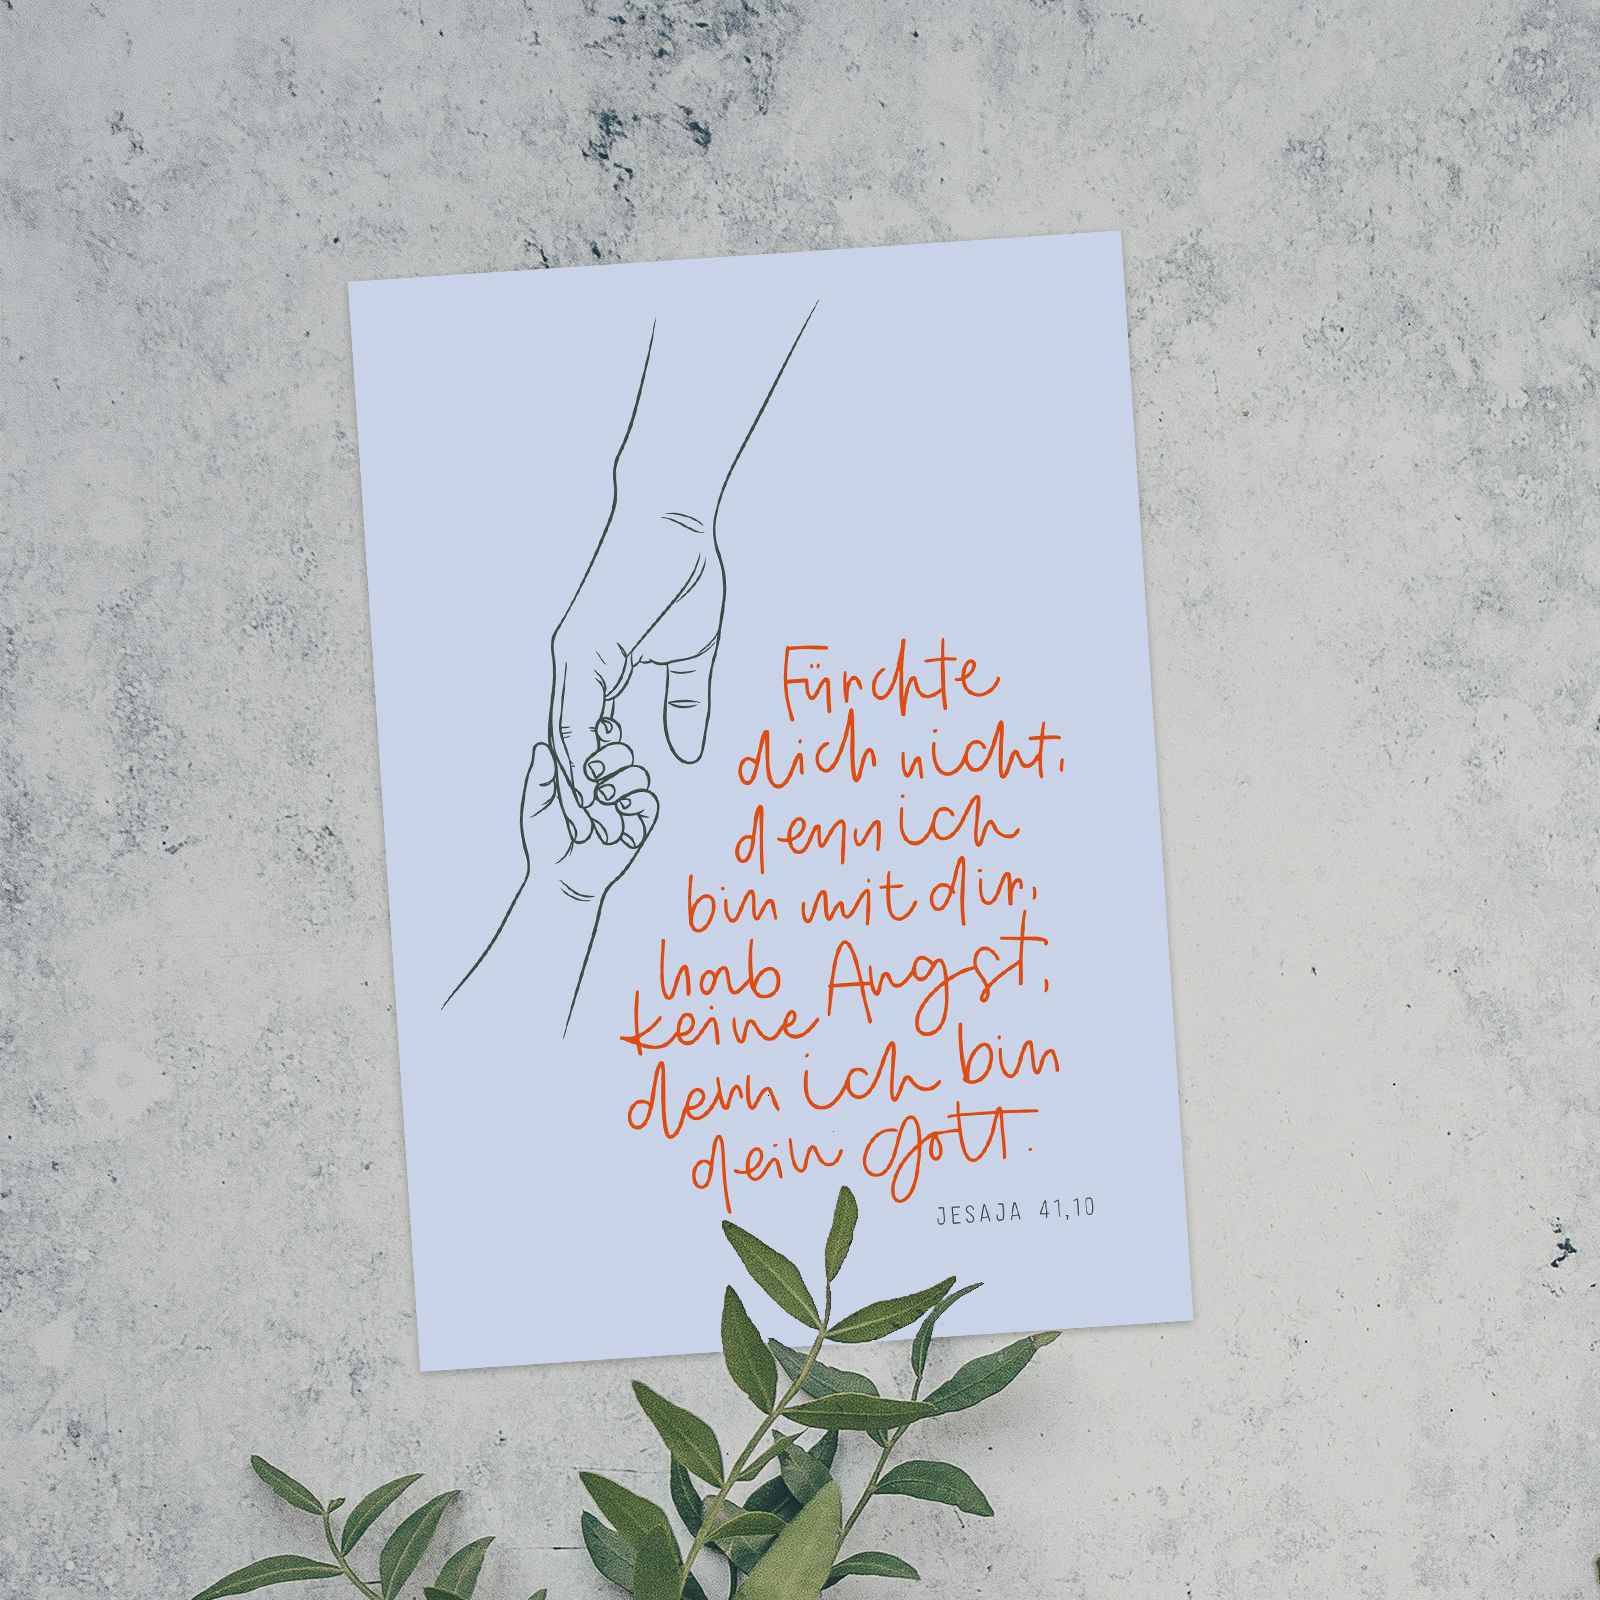 Fürchte
dich nicht,
denn ich
bin mit dir,
hab Angst,
keine
denn ich bin
dein Gott.
JESAJA 41,10